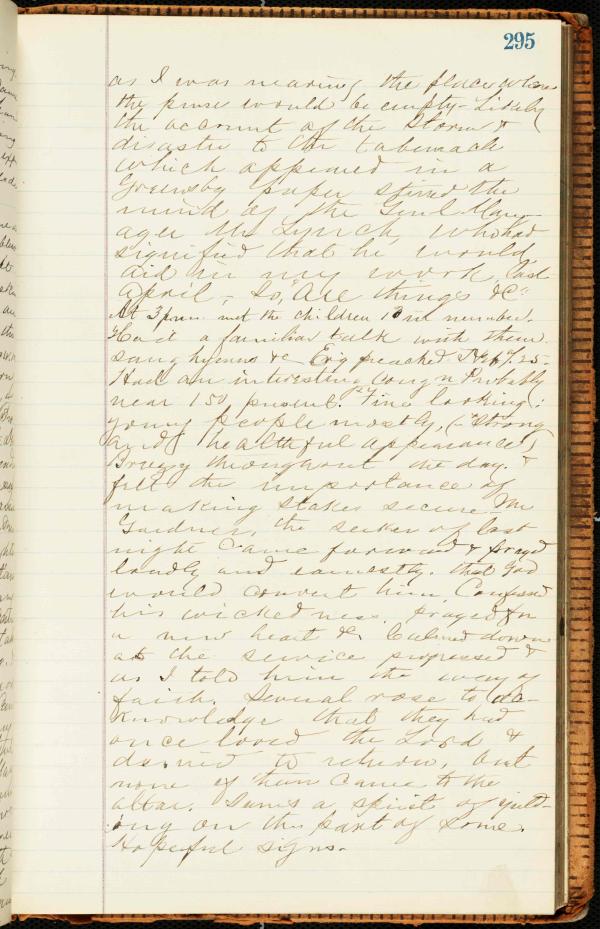 295
as I was nearing the place where
the purse would be empty - Likely
the account of the Storm &
disaster to the tabernacle
which appeared in a
Greensbo paper stirred the
mind of the Genl Man-
ager Mr Lynch, who had
signified that he would
aid in my work, last
April, - So, are things &c
At 3 p.m. met the children 10 in number.
Had a familiar talk with them
sang hymns &c Evg preached 7.25.
Had an interesting congn Probably
near 150 present. Fine looking:
young people mostly, (Strong
and healthful appearance)
Breezy throughout the day. &
felt the importance of
making stakes secure. Mr
Gardner, the seeker of last
night came forward & prayed
loudly and earnestly. that God
would convert him. Confessed
his wickedness. prayed for
a new heart &c. Calmed down
as the service progressed &
as I told him the way of
faith. Several rose to ac-
knowledge that they had
once loved the Lord &
desired to return, but
none of them came to the
altar. Seems a spirit of yield-
ing on the part of some.
Hopeful signs.